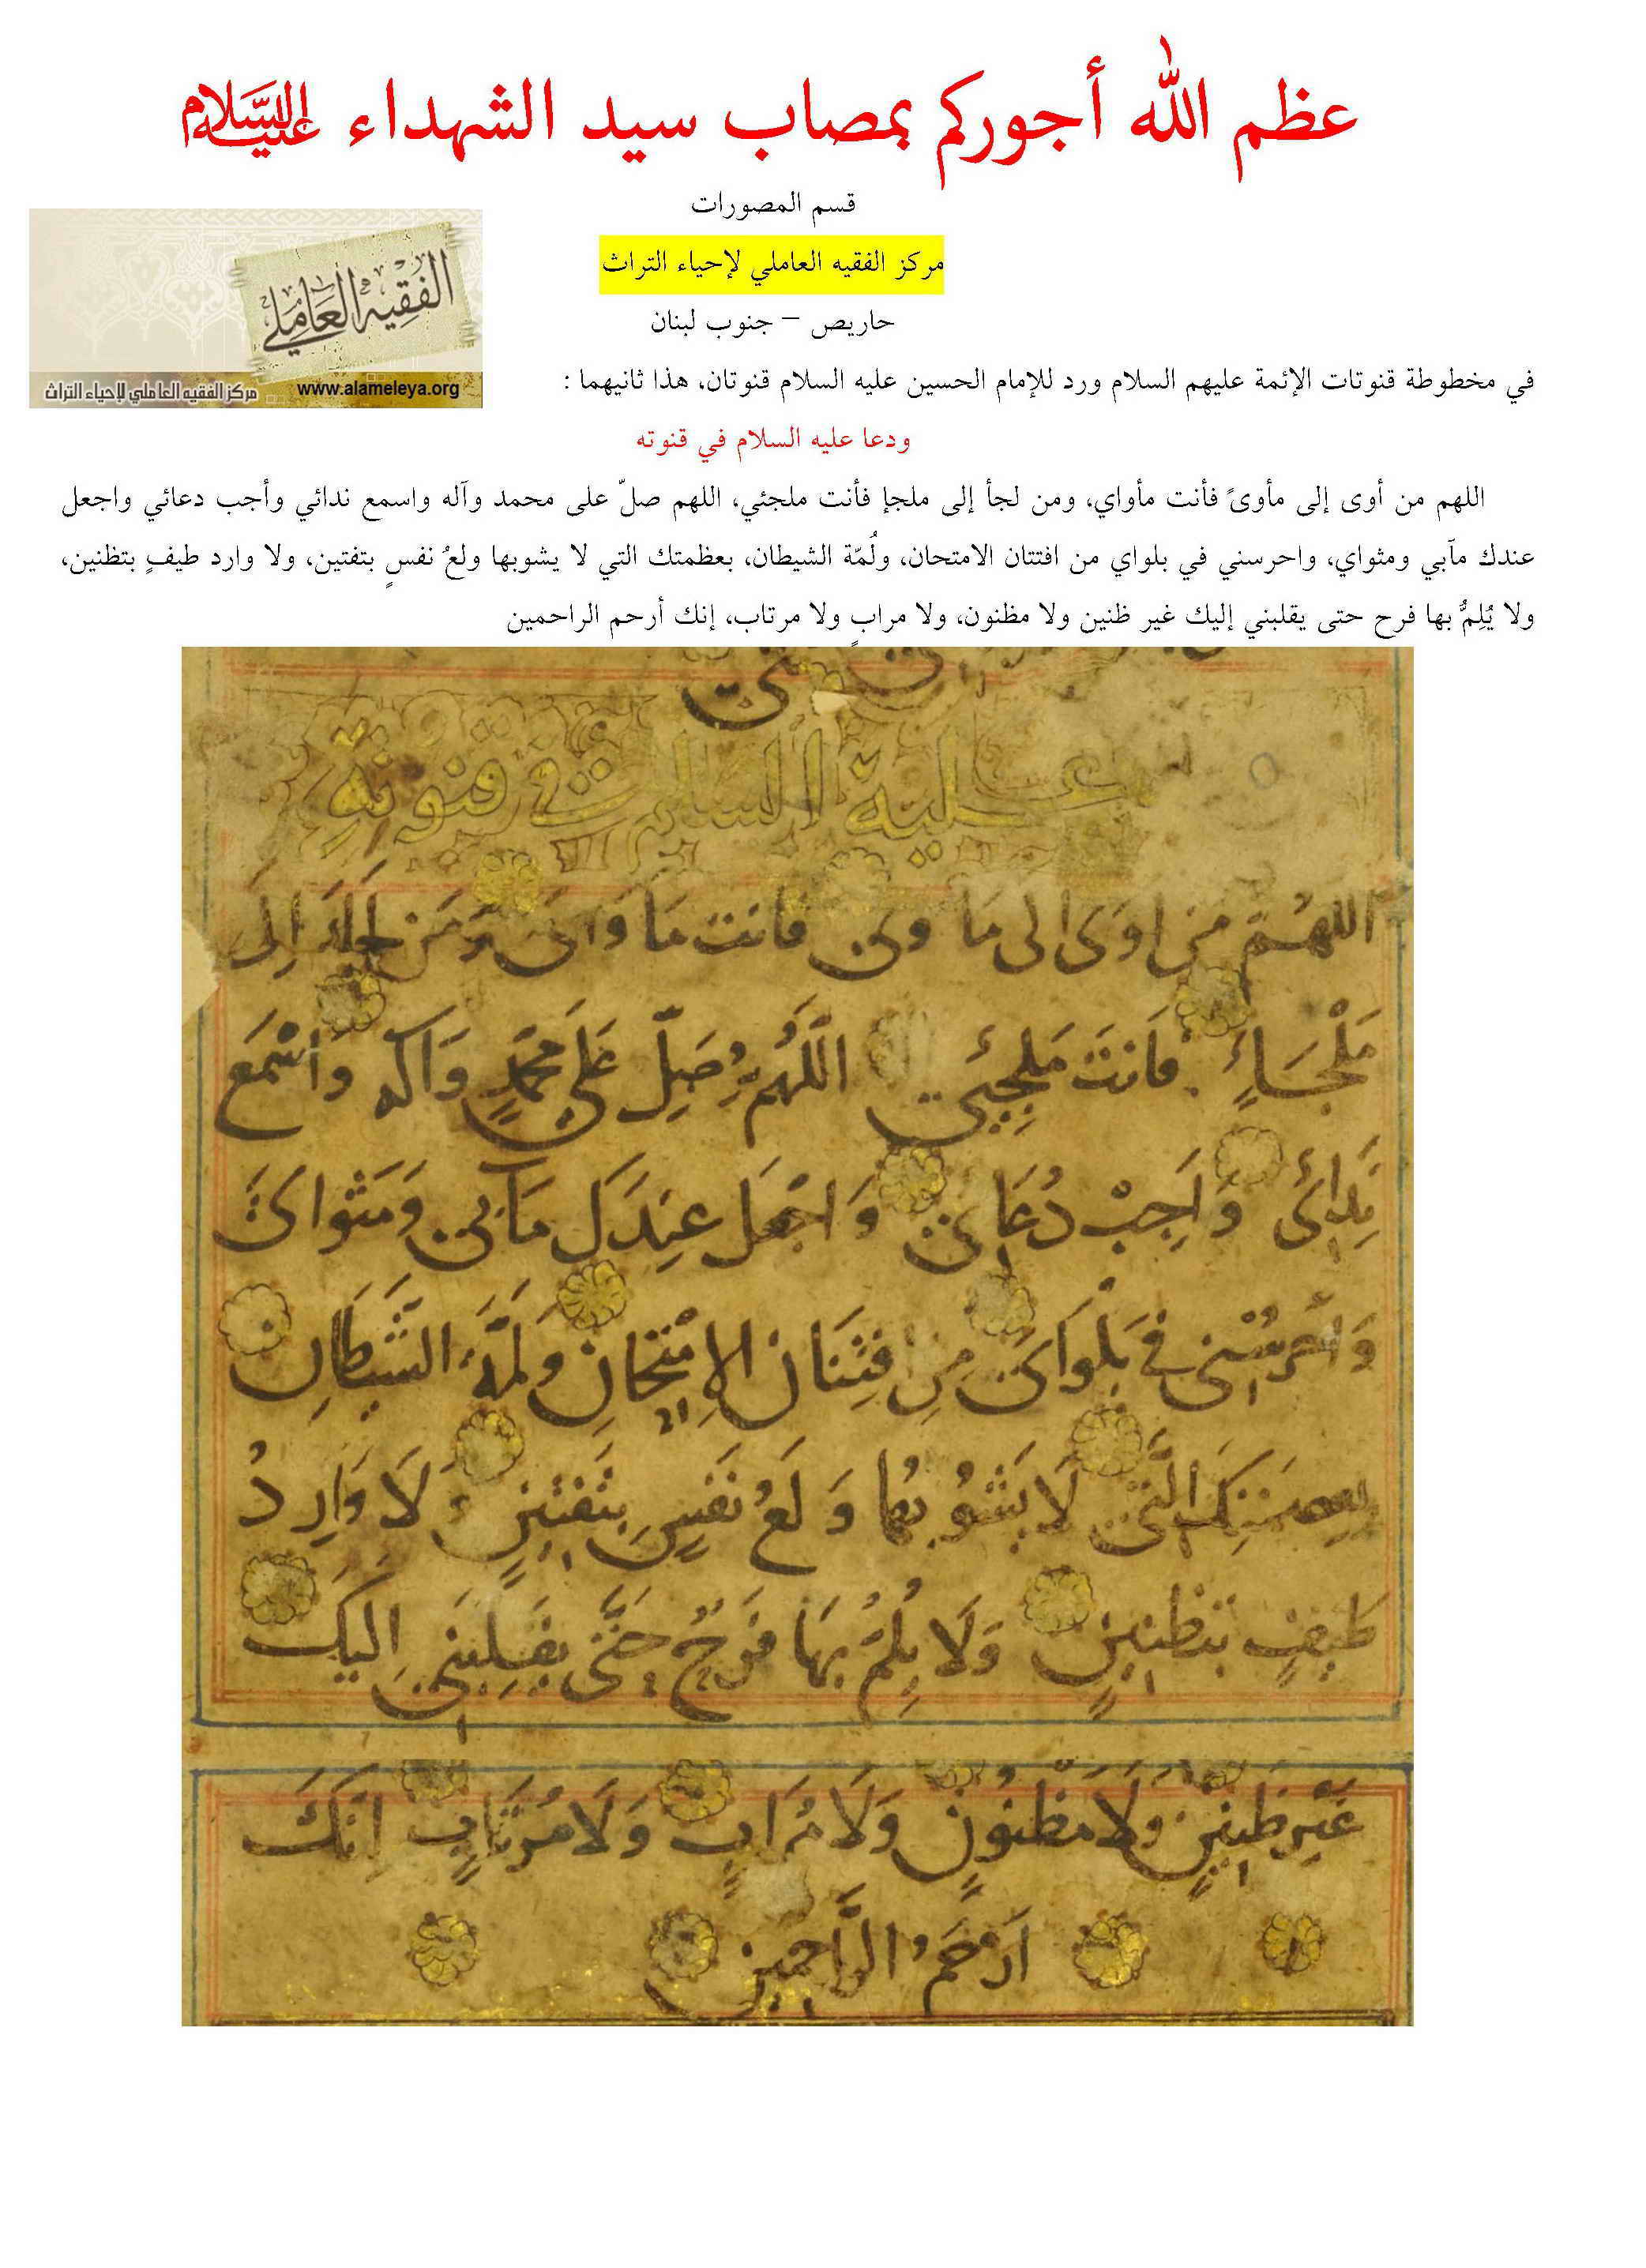 عظم الله أجوركم بمصاب سيد الشهداء عليه السلام
قسم المصورات
مركز الفقيه العاملي لإحياء التراث
حاريص – جنوب لبنان
الفقيه العاملي
مركز الفقيه العاملي لإحياء التراث www.alameleya.org
في مخطوطة قنوتات الإئمة عليهم السلام ورد للإمام الحسين عليه السلام قنوتان، هذا ثانيهما :
ودعا عليه السلام في قنوته
اللهم من أوى إلى مأوىً فأنت مأواي، ومن لجأ إلى ملجإ فأنت ملجئي، اللهم صلّ على محمد وآله واسمع ندائي وأجب دعائي واجعل
عندك مآبي ومثواي، واحرسني في بلواي من افتتان الامتحان، ولُمّة الشيطان، بعظمتك التي لا يشوبها ولعُ نفسٍ بتفتين، ولا وارد طيفٍ بتظنين،
ولا يُلِمُّ بها فرح حتى يقلبني إليك غير ظنين ولا مظنون، ولا مرابٍ ولا مرتاب، إنك أرحم الراحمين
عليه السلام في قنوته
اللهم من اوى الى ما وى فانت ماواى ومن لجأ الى
مَلْجَاءٍ فانتَ ملجئي اللَّهُمَّ صَلِّ عَلى محمَّدٍ وَآله وَاسْمَع
نِدائى وَاَجِبْ دُعَائى وَاجْعَل عِندَك مآبى وَمَثواىَ
وَاحْرُسْنى فى بَلْوَاىَ مِن افتِتَان الامْتِحَانِ وَلمَّةِ الشَّيطَانِ
الَّتى لَا يَشُوبُها وَلَعُ نَفسٍ بِتَفتينٍ وَلَا وَارِدُ
طَيفٍ بتَظنينٍ وَلَا يُلِمُّ بِهَا فَرَحٌ حَتَّى يَقلِبَنى اِليكَ
غَيرَ ظَنينٍ وَلَا مَظنُونٍ وَلَا مُرَابٍ وَلَا مُرتَابٍ اِنَّكَ
اَرْحَمُ الرَّاحِمينَ